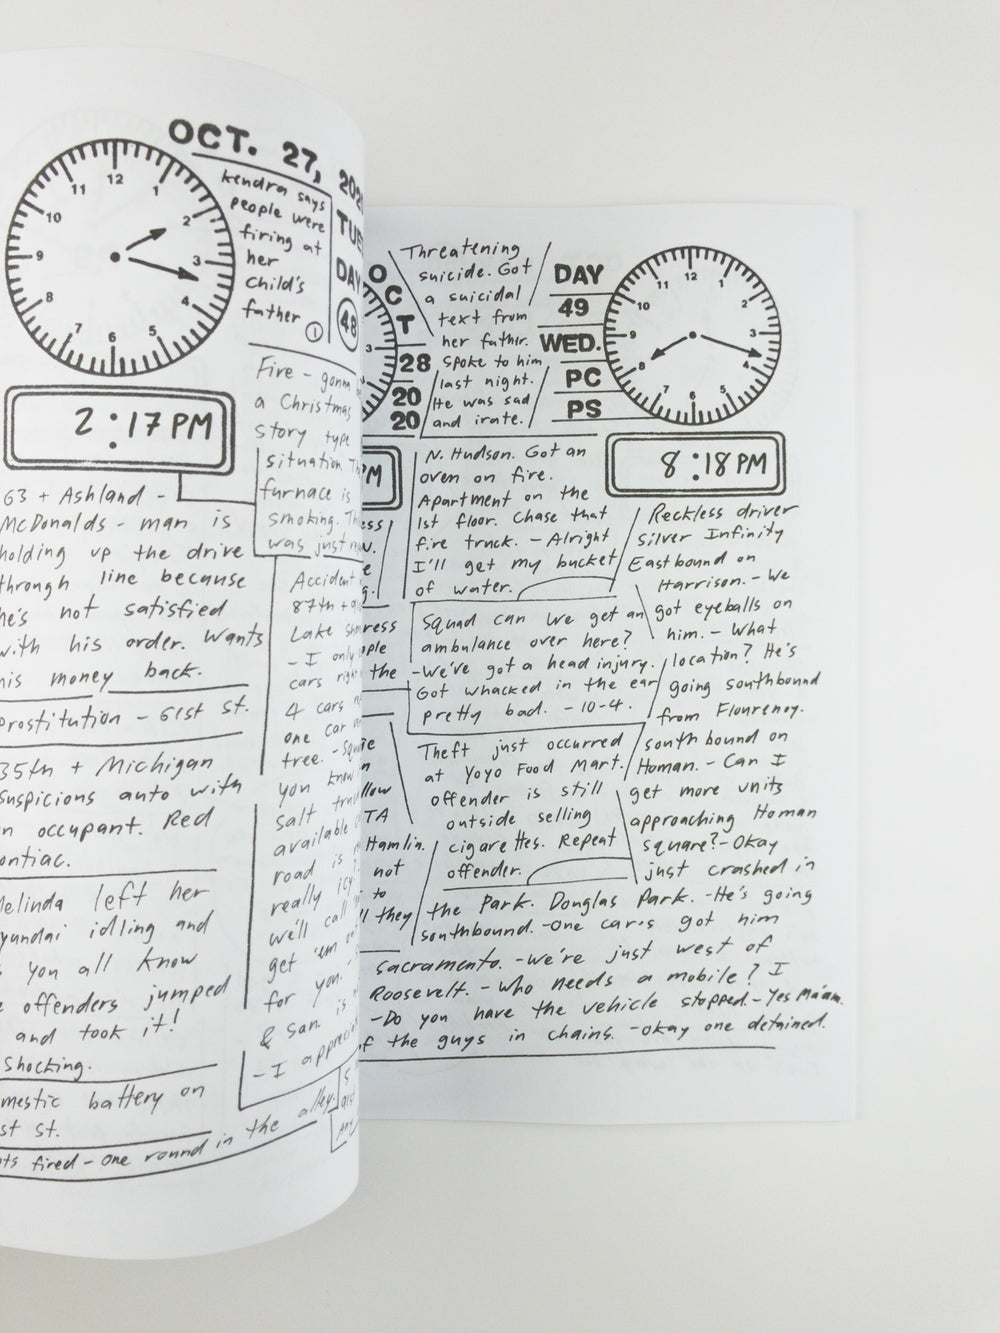 OCT. 27,
TUE
DAY
48
12
1
2
3
4
5
6
7
8
9
10
11
2:17 PM
Kendra says
people were
firing at
her
child's
father
1
Fire - gonna
a Christmas
story type
situation
furnace is
smoking.
was just
63 + Ashland -
McDonalds - man is
holding up the drive
through line because
he's not satisfied
with his order. Wants
his money back.
Prostitution - 61st St.
35th + Michigan
suspicious auto with
an occupant. Red
Pontiac.
Melinda left her
Hyundai idling and
you all know
offenders jumped
and took it!
Shocking.
battery on
st.
fired - One round in the alley.
Accident
87th +
Lake
- I only
cars right
4 cars
one car
tree.
you know
salt
available
road is
really icy
we'll call
get 'em
for you.
& San. is
- I
O
C
T
28
20
20
3
Threatening
suicide. Got
a suicidal
text from
her father.
Spoke to him
last night.
He was sad
and irate.
DAY
49
WED.
PC
PS
12
1
2
3
4
5
6
7
8
9
10
11
8:18 PM
N. Hudson. Got an
oven on fire.
Apartment on the
1st floor. Chase that
fire truck. - Alright
I'll get my bucket
of water.
Squad can we get an
ambulance over here?
- We've got a head injury.
Got whacked in the ear
pretty bad. - 10-4.
Theft just occurred
at Yoyo Food Mart.
offender is still
outside selling
cigarettes. Repeat
offender.
the
Hamlin.
not
to
they
Reckless driver
silver Infinity
Eastbound on
Harrison. - We
got eyeballs on
him. - What
location? He's
going southbound
from Flourenoy.
southbound on
Homan. - Can I
get more units
approaching Homan
square? - Okay
just crashed in
the Park. Douglas Park. - He's going
southbound. - One car's got him
Sacramento. - We're just west of
Roosevelt. - Who needs a mobile? I
- Do you have the vehicle stopped. - Yes Ma'am.
of the guys in chains. - Okay one detained.